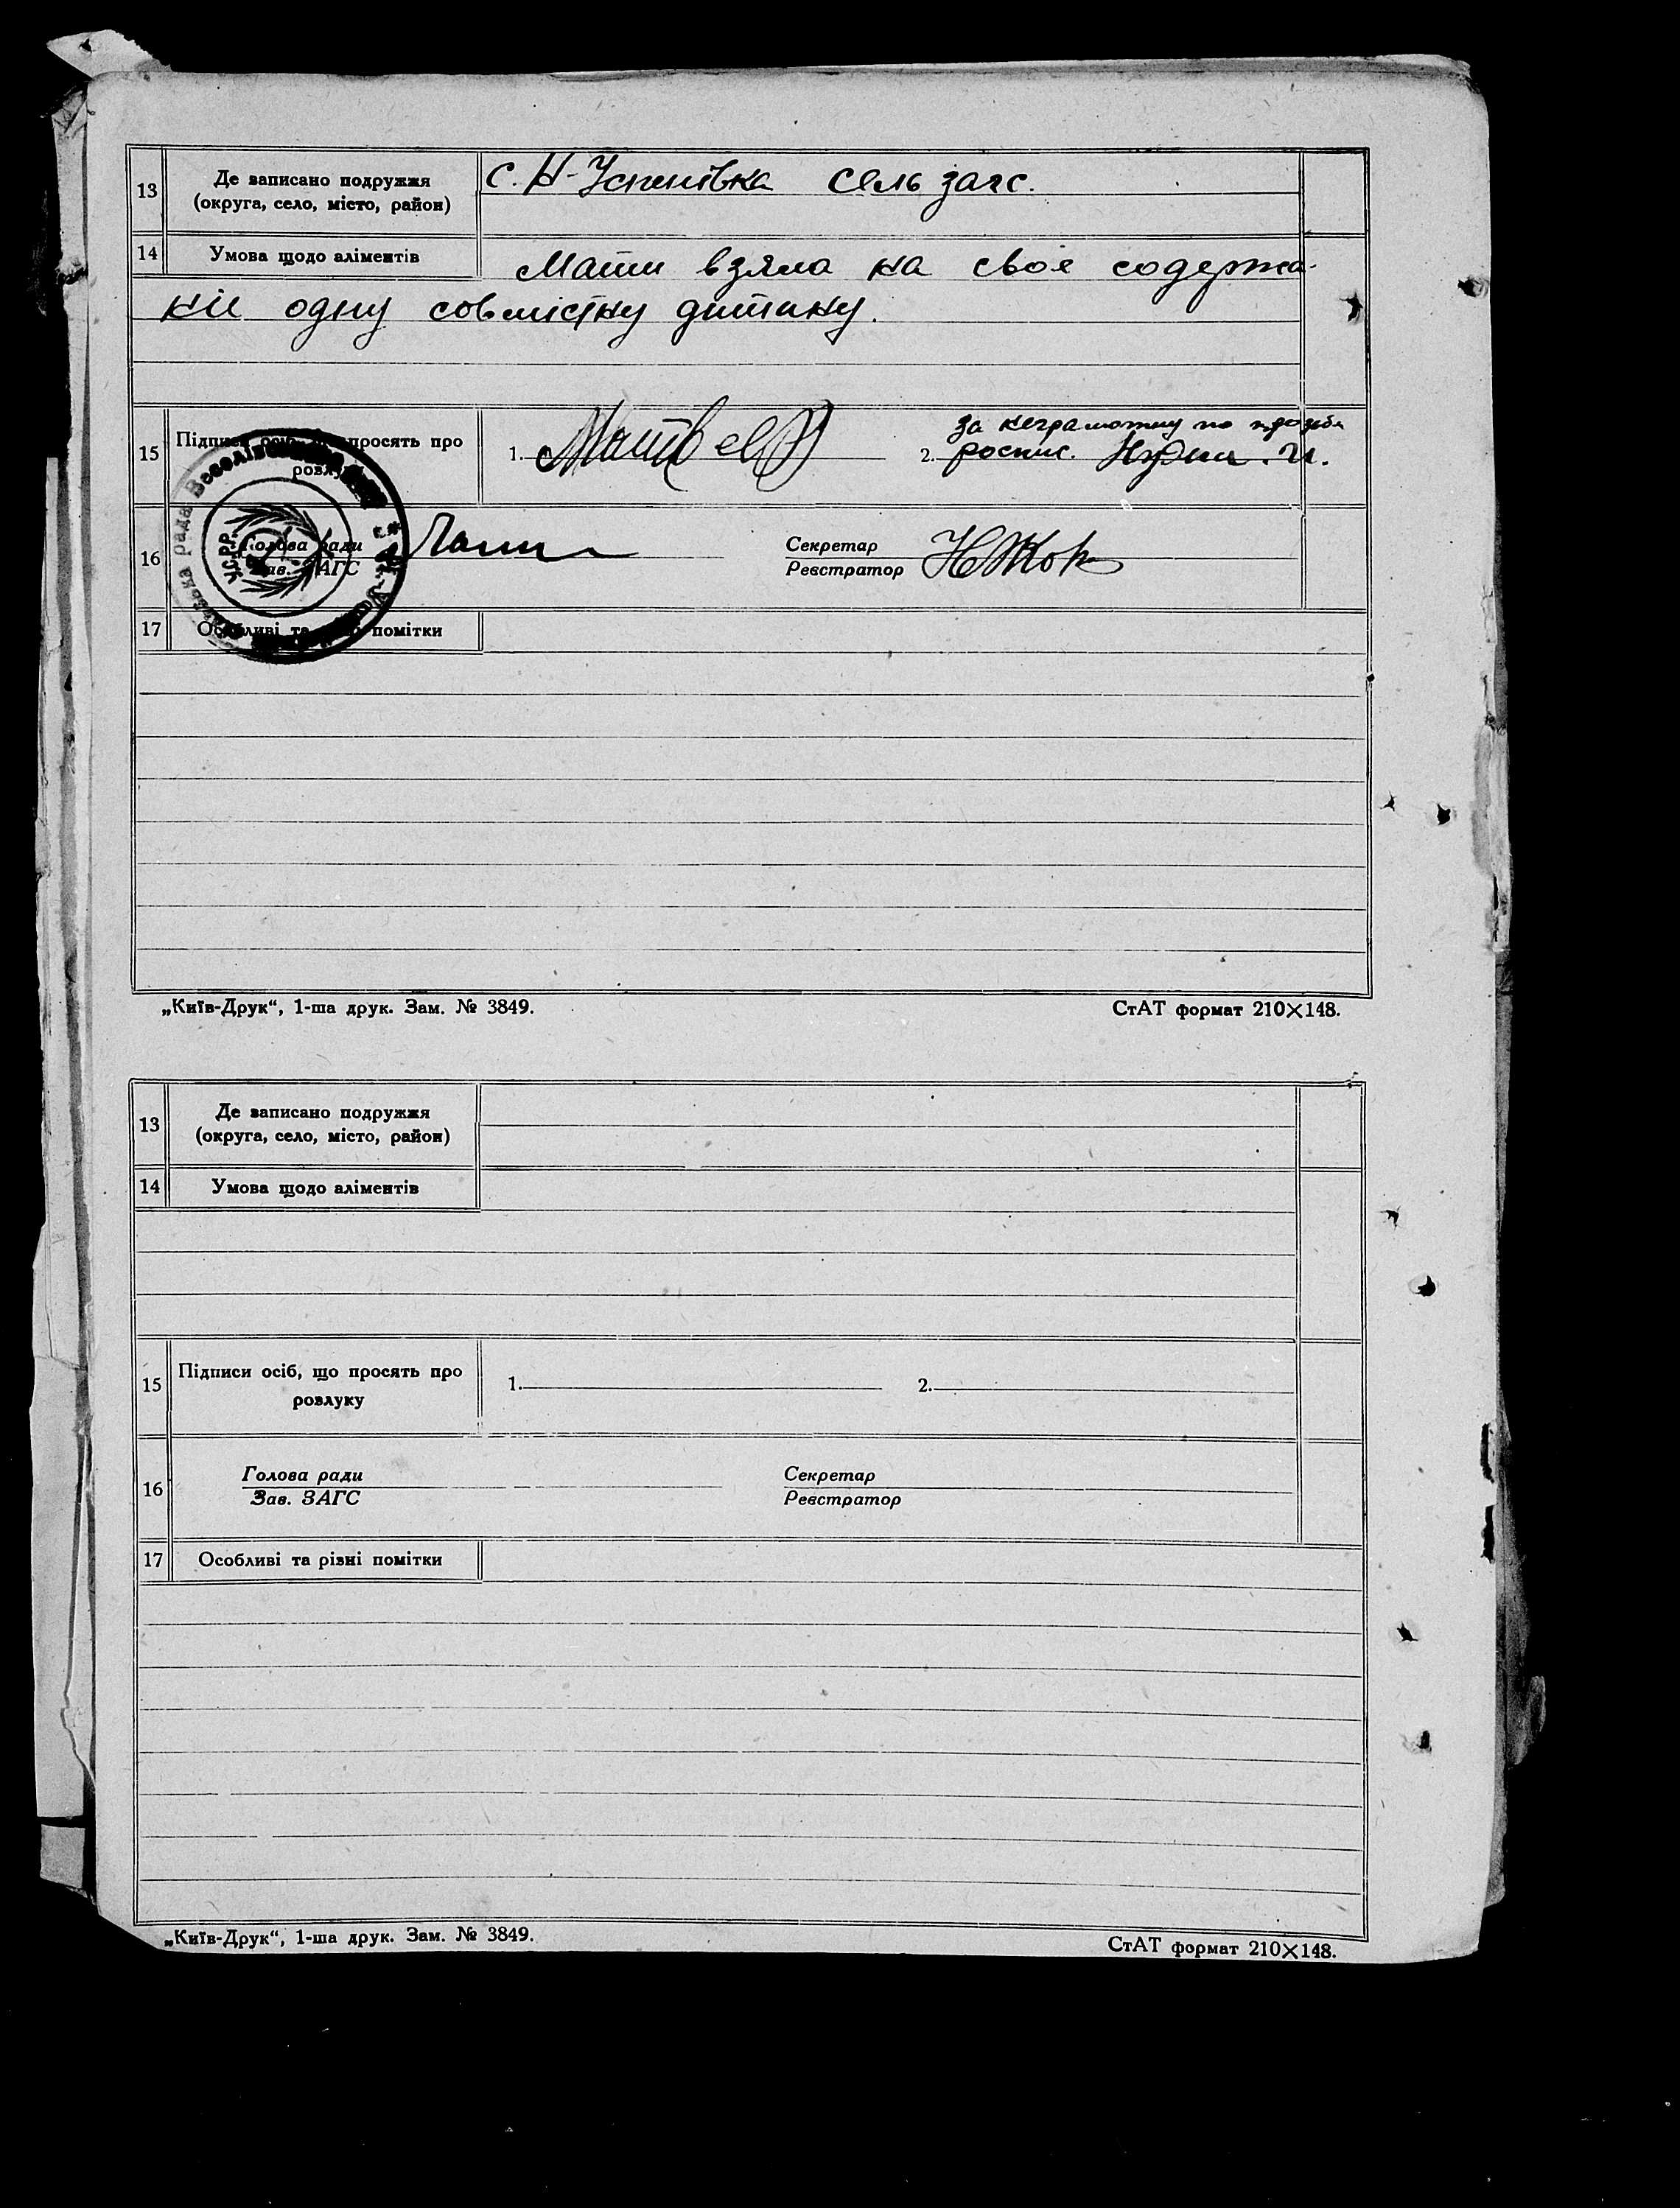 13
Де записано подружжя
(округа, село, місто, район)
с. Н-Успенівка сель загс.
14
Умова щодо аліментів
Мати взяла на своє содержа-
ніє одну совмістну дитину.
15
Підписи просять про
1.
2.
за неграмотну по прозьби
роспис.
16
Голова ради
Зав. ЗАГС
Секретар
Реєстратор
рада Веселівс
УСРР
17
Особливі та помітки
„Київ-Друк“, 1-ша друк. Зам. № 3849.
СтАТ формат 210×148.
13
Де записано подружжя
(округа, село, місто, район)
14
Умова щодо аліментів
15
Підписи осіб, що просять про
розлуку
1.
2.
16
Голова ради
Зав. ЗАГС
Секретар
Реєстратор
17
Особливі та різні помітки
„Київ-Друк“, 1-ша друк. Зам. № 3849.
СтАТ формат 210×148.